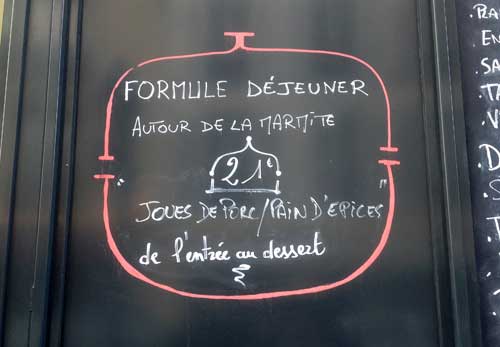 FORMULE DÉJEUNER
AUTOUR DE LA MARMITE
21€
"JOUES DE PORC/PAIN D'EPICES"
de l'entrée au dessert